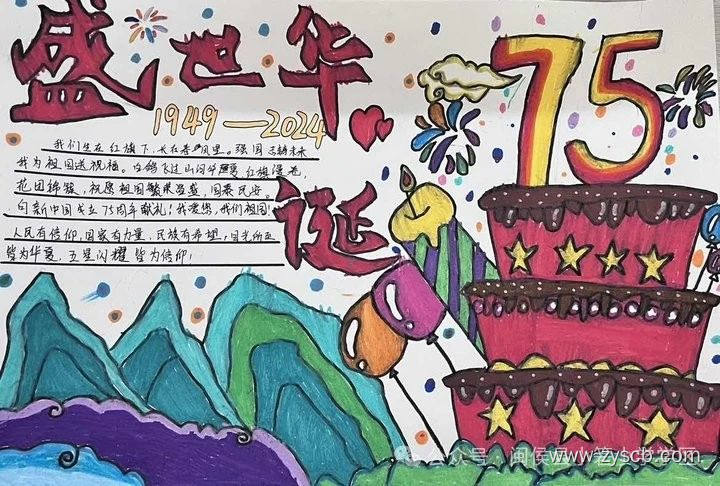 盛世华诞
75
1949—2024
我们生在红旗下,长在春风里。强国
我为祖国送祝福。白鸽飞过山河 红旗漫卷,
花团锦簇,祝愿祖国繁荣昌盛,国泰民安。
向新中国成立75周年献礼!我爱您,我们祖国!
人民有信仰,国家有力量,民族有希望,目光所至
皆为华夏,五星闪耀 皆为信仰!
公众号·闽侯
www.zyscb.com